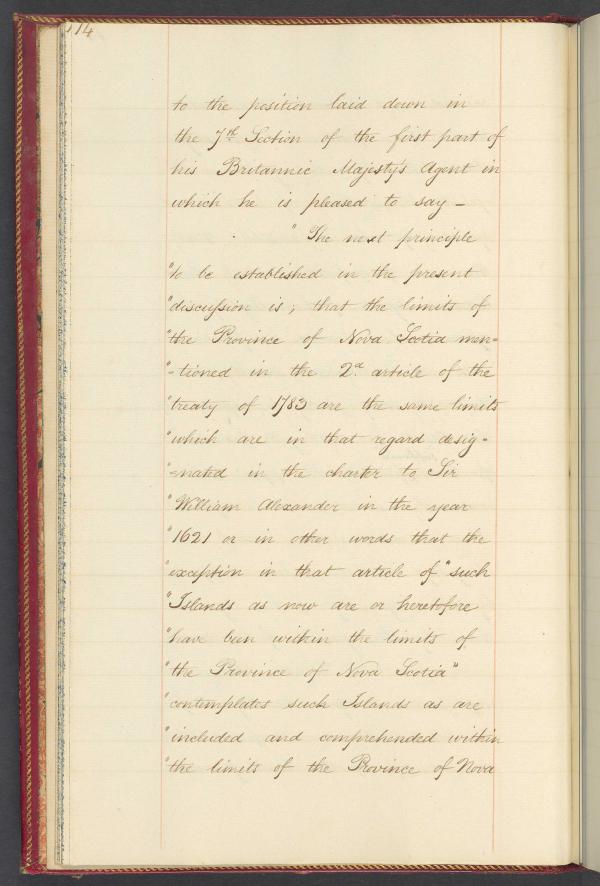 14
to the position laid down in
the 7rd Section of the first part of
his Britannic Majesty's Agent in
which he is pleased to say -
" The next principle
"to be established in the present
"discussion is, that the limits of
"the Province of Nova Scotia men-
"-tioned in the 2d article of the
"treaty of 1783 are the same limits
"which are in that regard desig-
"-nated in the charter to Sir
"William Alexander in the year
"1621 or in other words that the
"exception in that article of "such
"Islands as now are or heretofore
"have been within the limits of
"the Province of Nova Scotia"
"contemplates such Islands as are
"included and comprehended within
"the limits of the Province of Nova